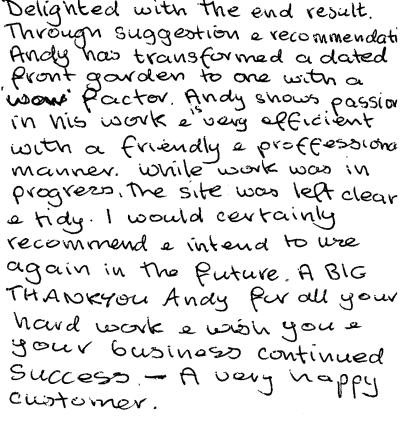 Delighted with the end result.
Through suggestion & recommendati
Andy has transformed a dated
front garden to one with a
'wow' factor. Andy shows passion
in his work & is very efficient
with a friendly & proffessiona
manner. While work was in
progress, the site was left clear
& tidy. I would certainly
recommend & intend to use
again in the future. A BIG
THANKYOU Andy for all your
hard work & wish you &
your business continued
success. - A very happy
customer.